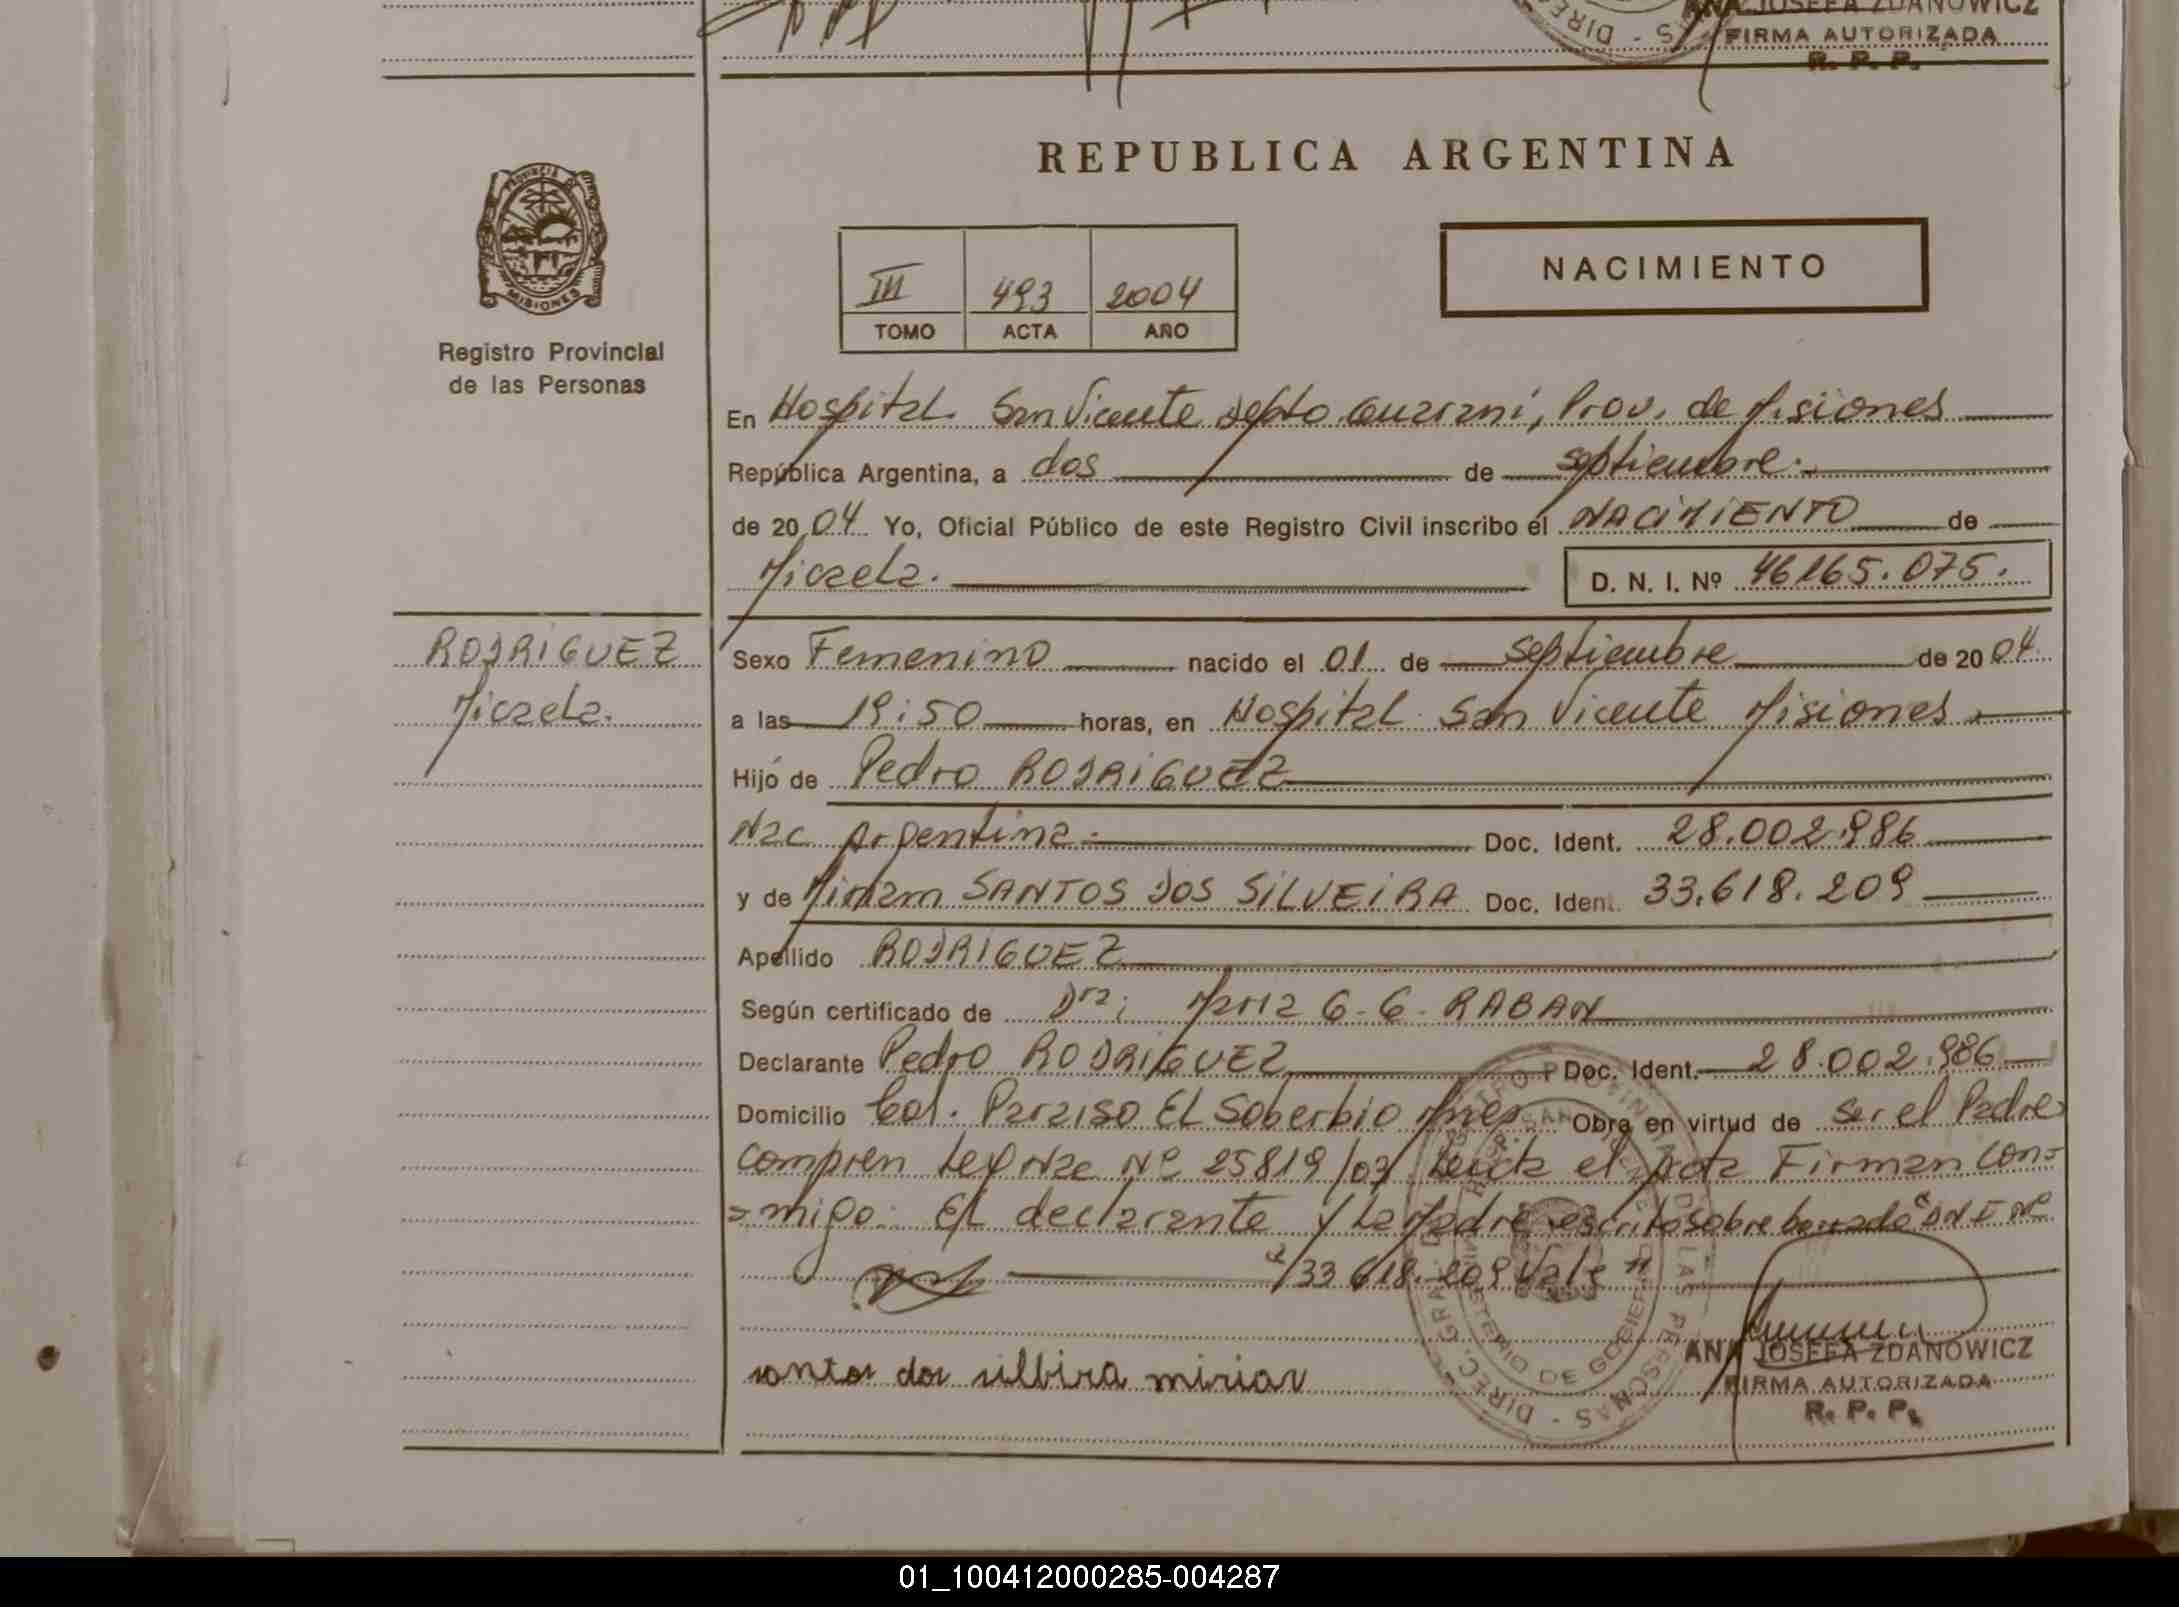 ANA JOSEFA ZDANOWICZ
DIREC
FIRMA AUTORIZADA
R. P. P.
REPUBLICA ARGENTINA
PROVINCIA DE
MISIONES
Registro Provincial
de las Personas
III 493 2004
TOMO ACTA AÑO
NACIMIENTO
En Hospital San Vicente Depto Guarani, Prov. de Misiones
República Argentina, a dos de septiembre.
de 2004 Yo, Oficial Público de este Registro Civil inscribo el NACIMIENTO de
Micaela. D. N. I. Nº 46165.075.
RODRIGUEZ
Micaela.
Sexo Femenino nacido el 01 de septiembre de 2004
a las 19:50 horas, en Hospital San Vicente Misiones.
Hijo de Pedro RODRIGUEZ
Nac Argentina. Doc. Ident. 28.002.986
y de Miriam SANTOS DOS SILVEIRA Doc. Ident. 33.618.209
Apellido RODRIGUEZ
Según certificado de Dra: G.G. RABAN
Declarante Pedro RODRIGUEZ Doc. Ident. 28.002.986
Domicilio Col. Paraiso EL Soberbio Mnes. Obra en virtud de ser el Padre
Compren Ley Nac Nº 25819/03 Leida el acta Firman con=
=migo: El declarante y La Madre escrito sobre borrado "DNI Nº
33.618.209 Vale"
santos dos silbira mirian
DIREC. GRAL. DE LAS PERSONAS
MINISTERIO DE GOBIERNO
ANA JOSEFA ZDANOWICZ
FIRMA AUTORIZADA
R. P. P.
01_100412000285-004287